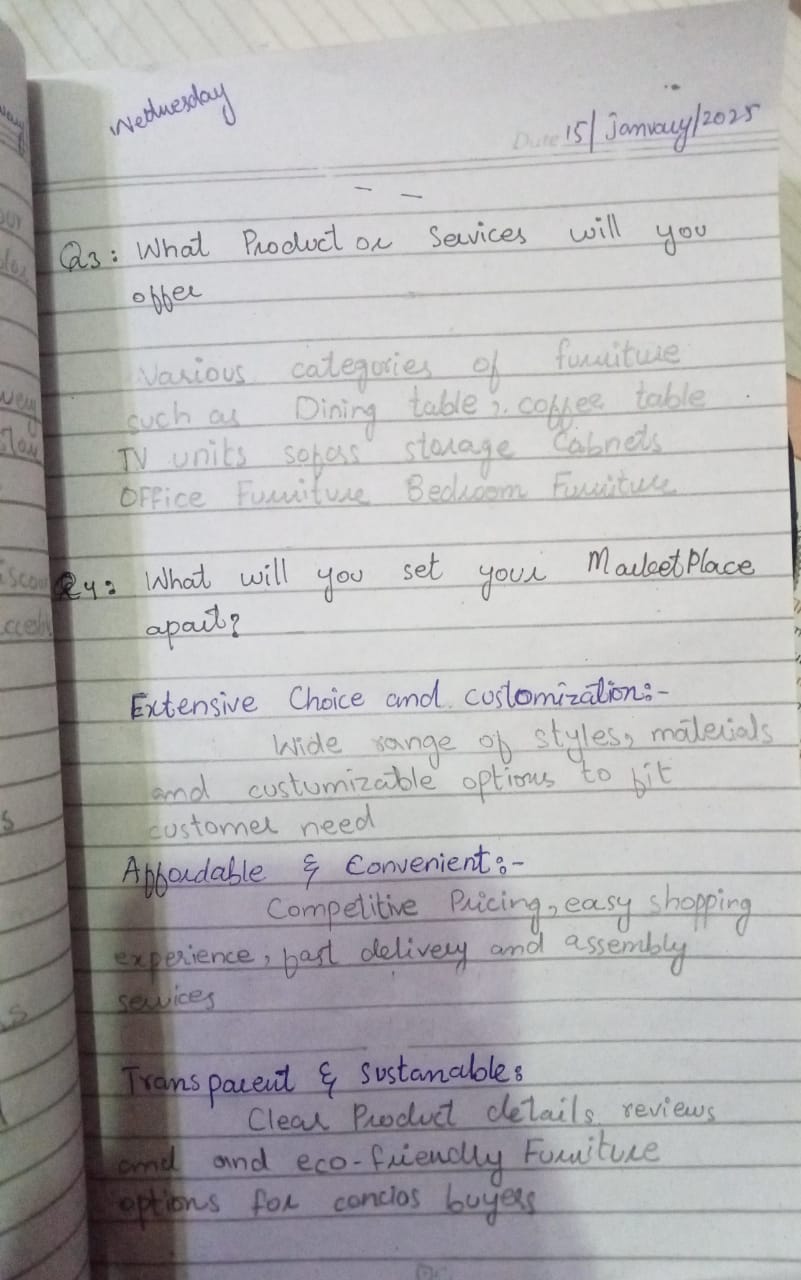 Wednesday
Date 15/January/2025
Q3: What Product or Services will you
offer
Various categories of furniture
such as Dining table, coffee table
TV units sofass storage Cabnets
Office Furniture Bedroom Furniture
Q4: What will you set your MarketPlace
apart?
Extensive Choice and customization:-
Wide range of styles, materials
and custumizable options to fit
customer need
Affordable & Convenient:-
Competitive Pricing, easy shopping
experience, fast delivery and assembly
services
Transparent & Sustanable:
Clear Product details reviews
and and eco-friendly Furniture
options for concios buyers